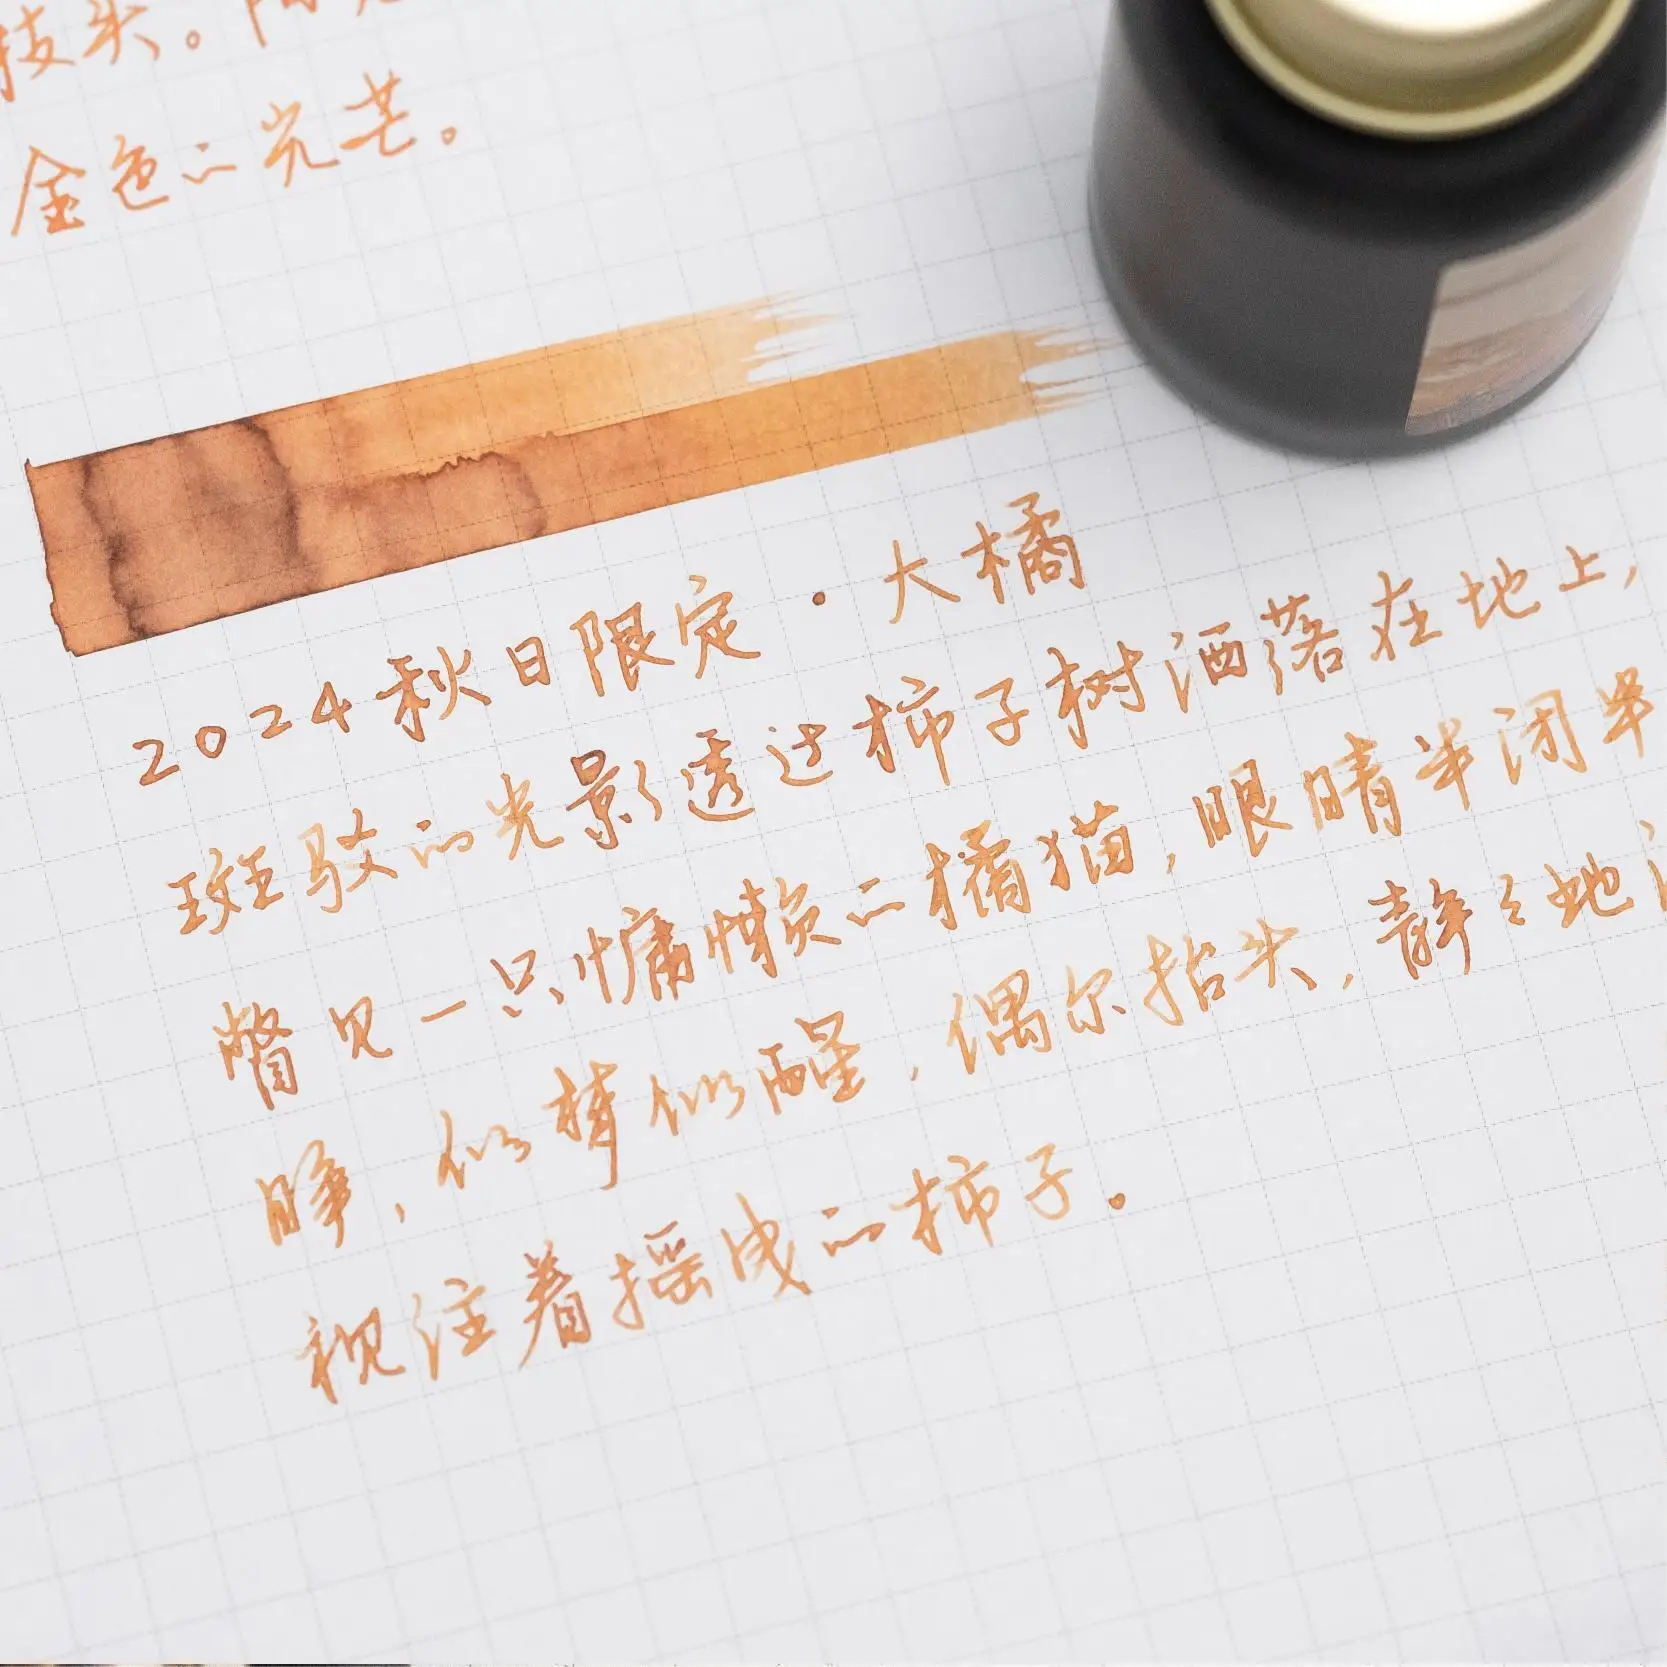 枝头。阳光
金色的光芒。
2024秋日限定·大橘
斑驳的光影透过柿子树洒落在地上,
瞥见一只慵懒的橘猫,眼睛半闭半
睁,似梦似醒,偶尔抬头,静々地
视注着摇曳的柿子.